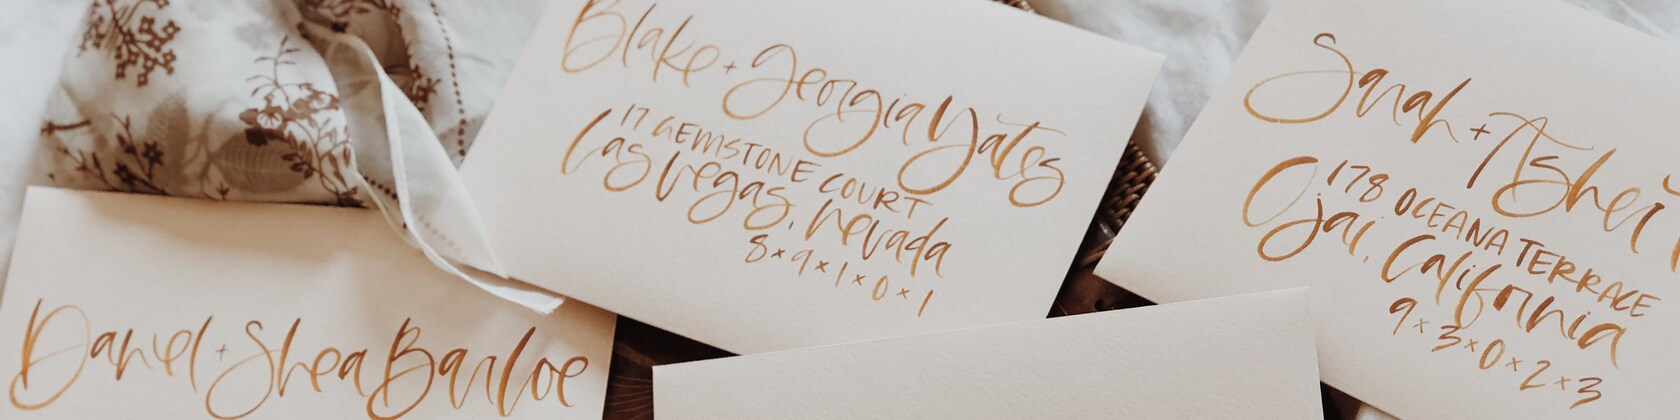 Blake + Georgia Yates
17 GEMSTONE COURT
Las Vegas, Nevada
8×9×1×0×1
Sarah + Ashei
178 OCEANA TERRACE
Ojai, California
9×3×0×2×3
Daniel + Shea Barloe